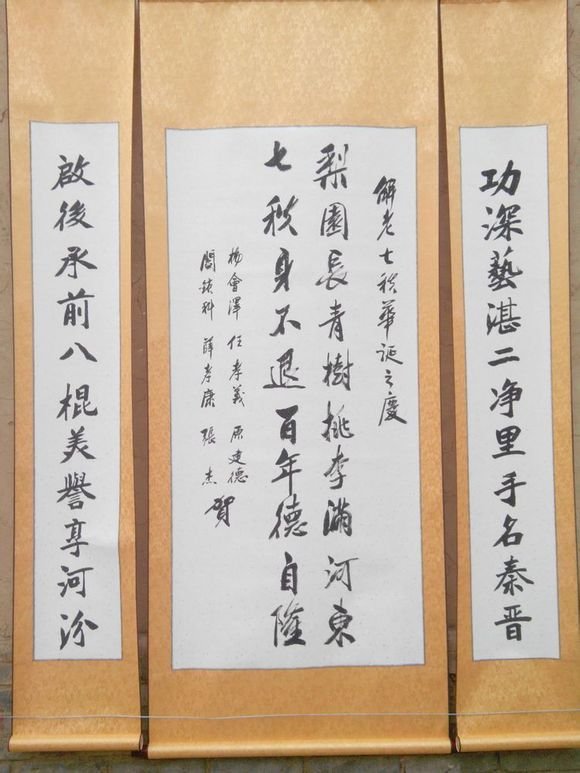 功深藝湛二净里手名秦晋
解老七秩華诞之慶
梨園長青樹桃李滿河東
七秩身不退百年德自隆
杨會澤 任孝義 原建德
閻鎖科 薛孝康 張杰 賀
啟後承前八棍美譽享河汾